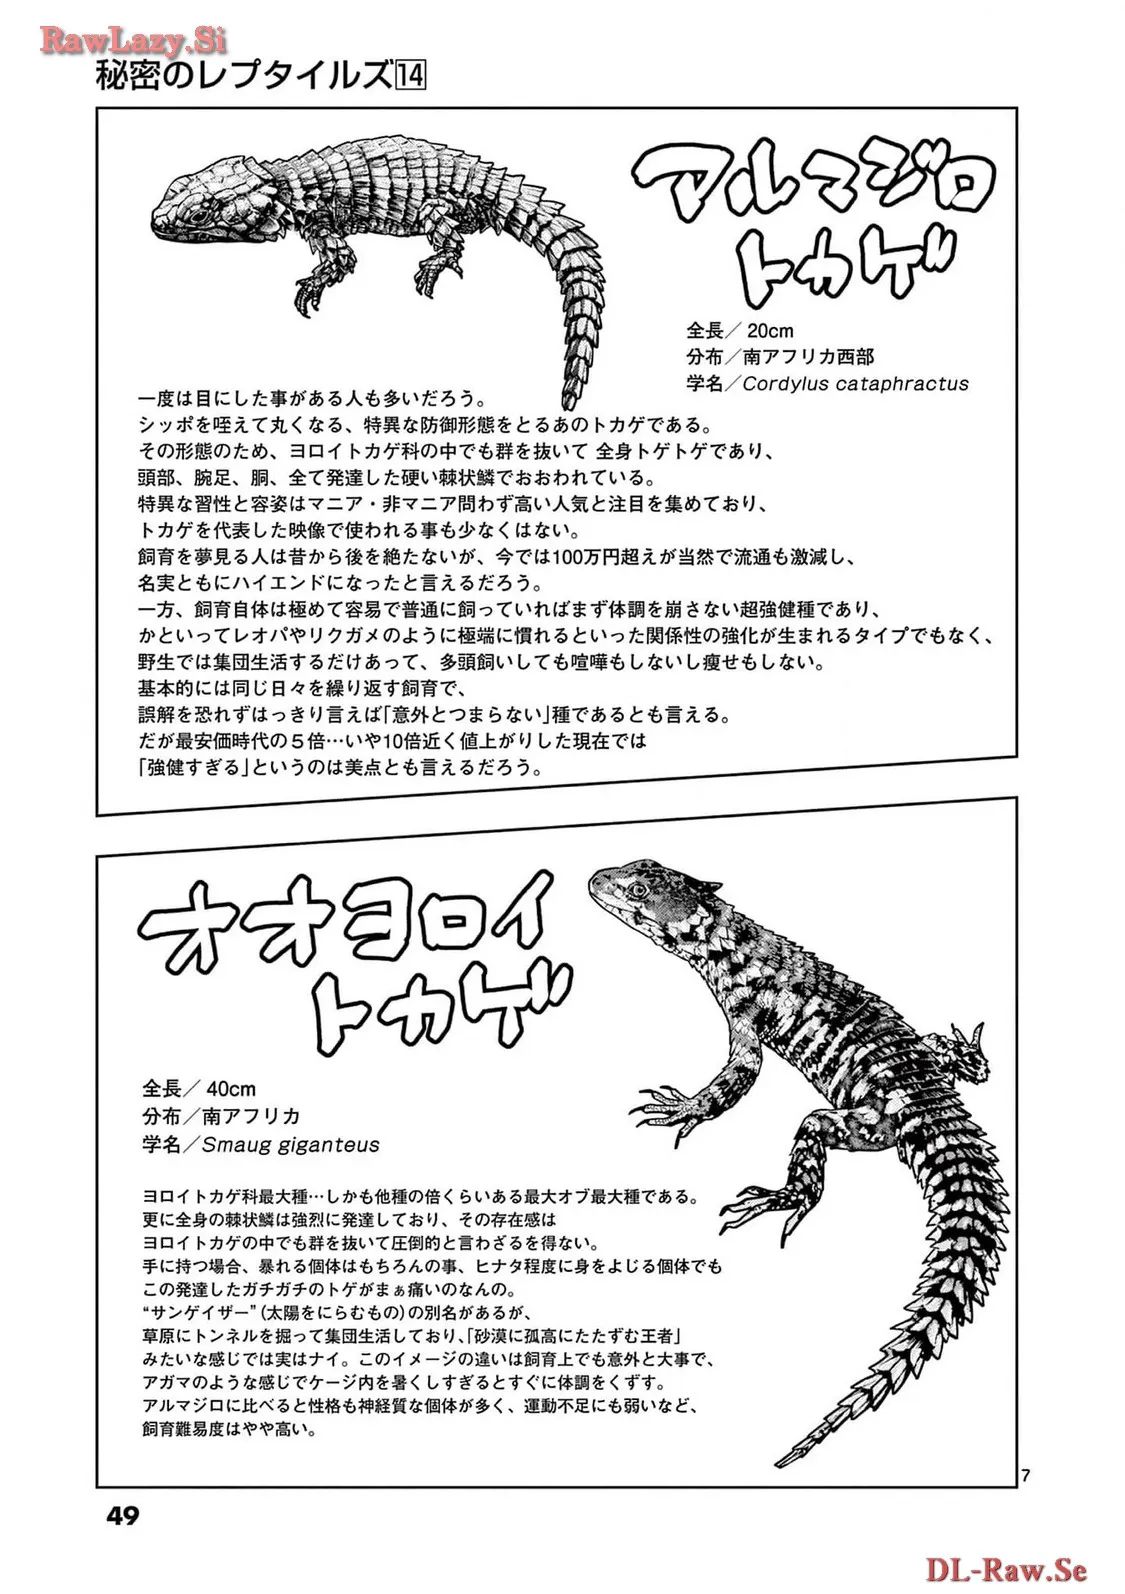 RawLazy.Si
秘密のレプタイルズ14
アルマジロ
トカゲ
全長／20cm
分布／南アフリカ西部
学名／Cordylus cataphractus
一度は目にした事がある人も多いだろう。
シッポを咥えて丸くなる、特異な防御形態をとるあのトカゲである。
その形態のため、ヨロイトカゲ科の中でも群を抜いて全身トゲトゲであり、
頭部、腕足、胴、全て発達した硬い棘状鱗でおおわれている。
特異な習性と容姿はマニア・非マニア問わず高い人気と注目を集めており、
トカゲを代表した映像で使われる事も少なくはない。
飼育を夢見る人は昔から後を絶たないが、今では100万円超えが当然で流通も激減し、
名実ともにハイエンドになったと言えるだろう。
一方、飼育自体は極めて容易で普通に飼っていればまず体調を崩さない超強健種であり、
かといってレオパやリクガメのように極端に慣れるといった関係性の強化が生まれるタイプでもなく、
野生では集団生活するだけあって、多頭飼いしても喧嘩もしないし痩せもしない。
基本的には同じ日々を繰り返す飼育で、
誤解を恐れずはっきり言えば「意外とつまらない」種であるとも言える。
だが最安価時代の５倍…いや10倍近く値上がりした現在では
「強健すぎる」というのは美点とも言えるだろう。
オオヨロイ
トカゲ
全長／40cm
分布／南アフリカ
学名／Smaug giganteus
ヨロイトカゲ科最大種…しかも他種の倍くらいある最大オブ最大種である。
更に全身の棘状鱗は強烈に発達しており、その存在感は
ヨロイトカゲの中でも群を抜いて圧倒的と言わざるを得ない。
手に持つ場合、暴れる個体はもちろんの事、ヒナタ程度に身をよじる個体でも
この発達したガチガチのトゲがまぁ痛いのなんの。
“サンゲイザー”（太陽をにらむもの）の別名があるが、
草原にトンネルを掘って集団生活しており、「砂漠に孤高にたたずむ王者」
みたいな感じでは実はナイ。このイメージの違いは飼育上でも意外と大事で、
アガマのような感じでケージ内を暑くしすぎるとすぐに体調をくずす。
アルマジロに比べると性格も神経質な個体が多く、運動不足にも弱いなど、
飼育難易度はやや高い。
7
49
DL-Raw.Se